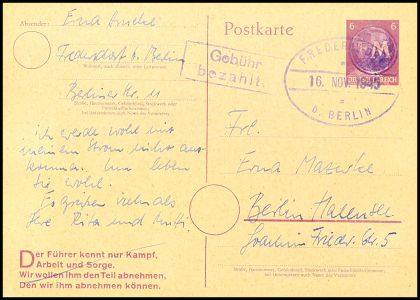 Absender: Erna
Fredersdorf b. Berlin
Wohnort, auch Zustell- oder Leitpostamt
Berliner Str. 11
Straße, Hausnummer, Gebäudeteil, Stockwerk oder
Postschließfachnummer;
bei Untermietern auch Name des Vermieters
Ich werde wohl mit
meinem Strom nicht aus-
kommen. Nun leben
Sie wohl.
Es grüßen vielmals
Ihre Rita und Mutti.
Der Führer kennt nur Kampf,
Arbeit und Sorge.
Wir wollen ihm den Teil abnehmen,
Den wir ihm abnehmen können.
Postkarte
Gebühr
bezahlt.
6 6
DEUTSCHES REICH
FREDERSDORF
16. NOV. 1945
b. BERLIN
Frl.
Erna
Berlin Halensee
Joachim Friedr. Str. 5
Straße, Hausnummer, Gebäudeteil, Stockwerk oder Postschließfachnummer;
bei Untermietern auch Name des Vermieters